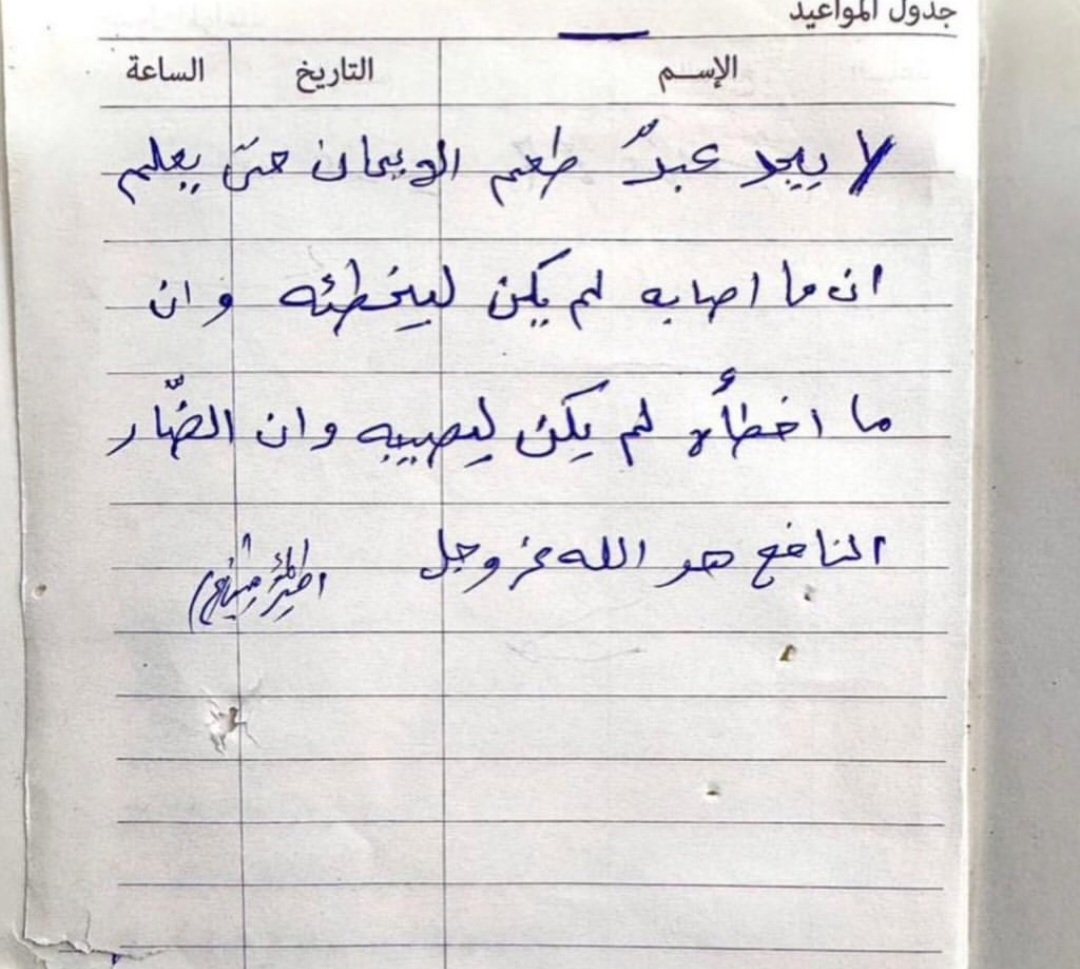 جدول المواعيد
الإسـم التاريخ الساعة
لا يجد عبدٌ طعم الايمان حتى يعلم
ان ما اصابه لم يكن ليخطئه وان
ما اخطأه لم يكن ليصيبه وان الضّار
النافع هو الله عز وجل امير المؤمنين (ع)